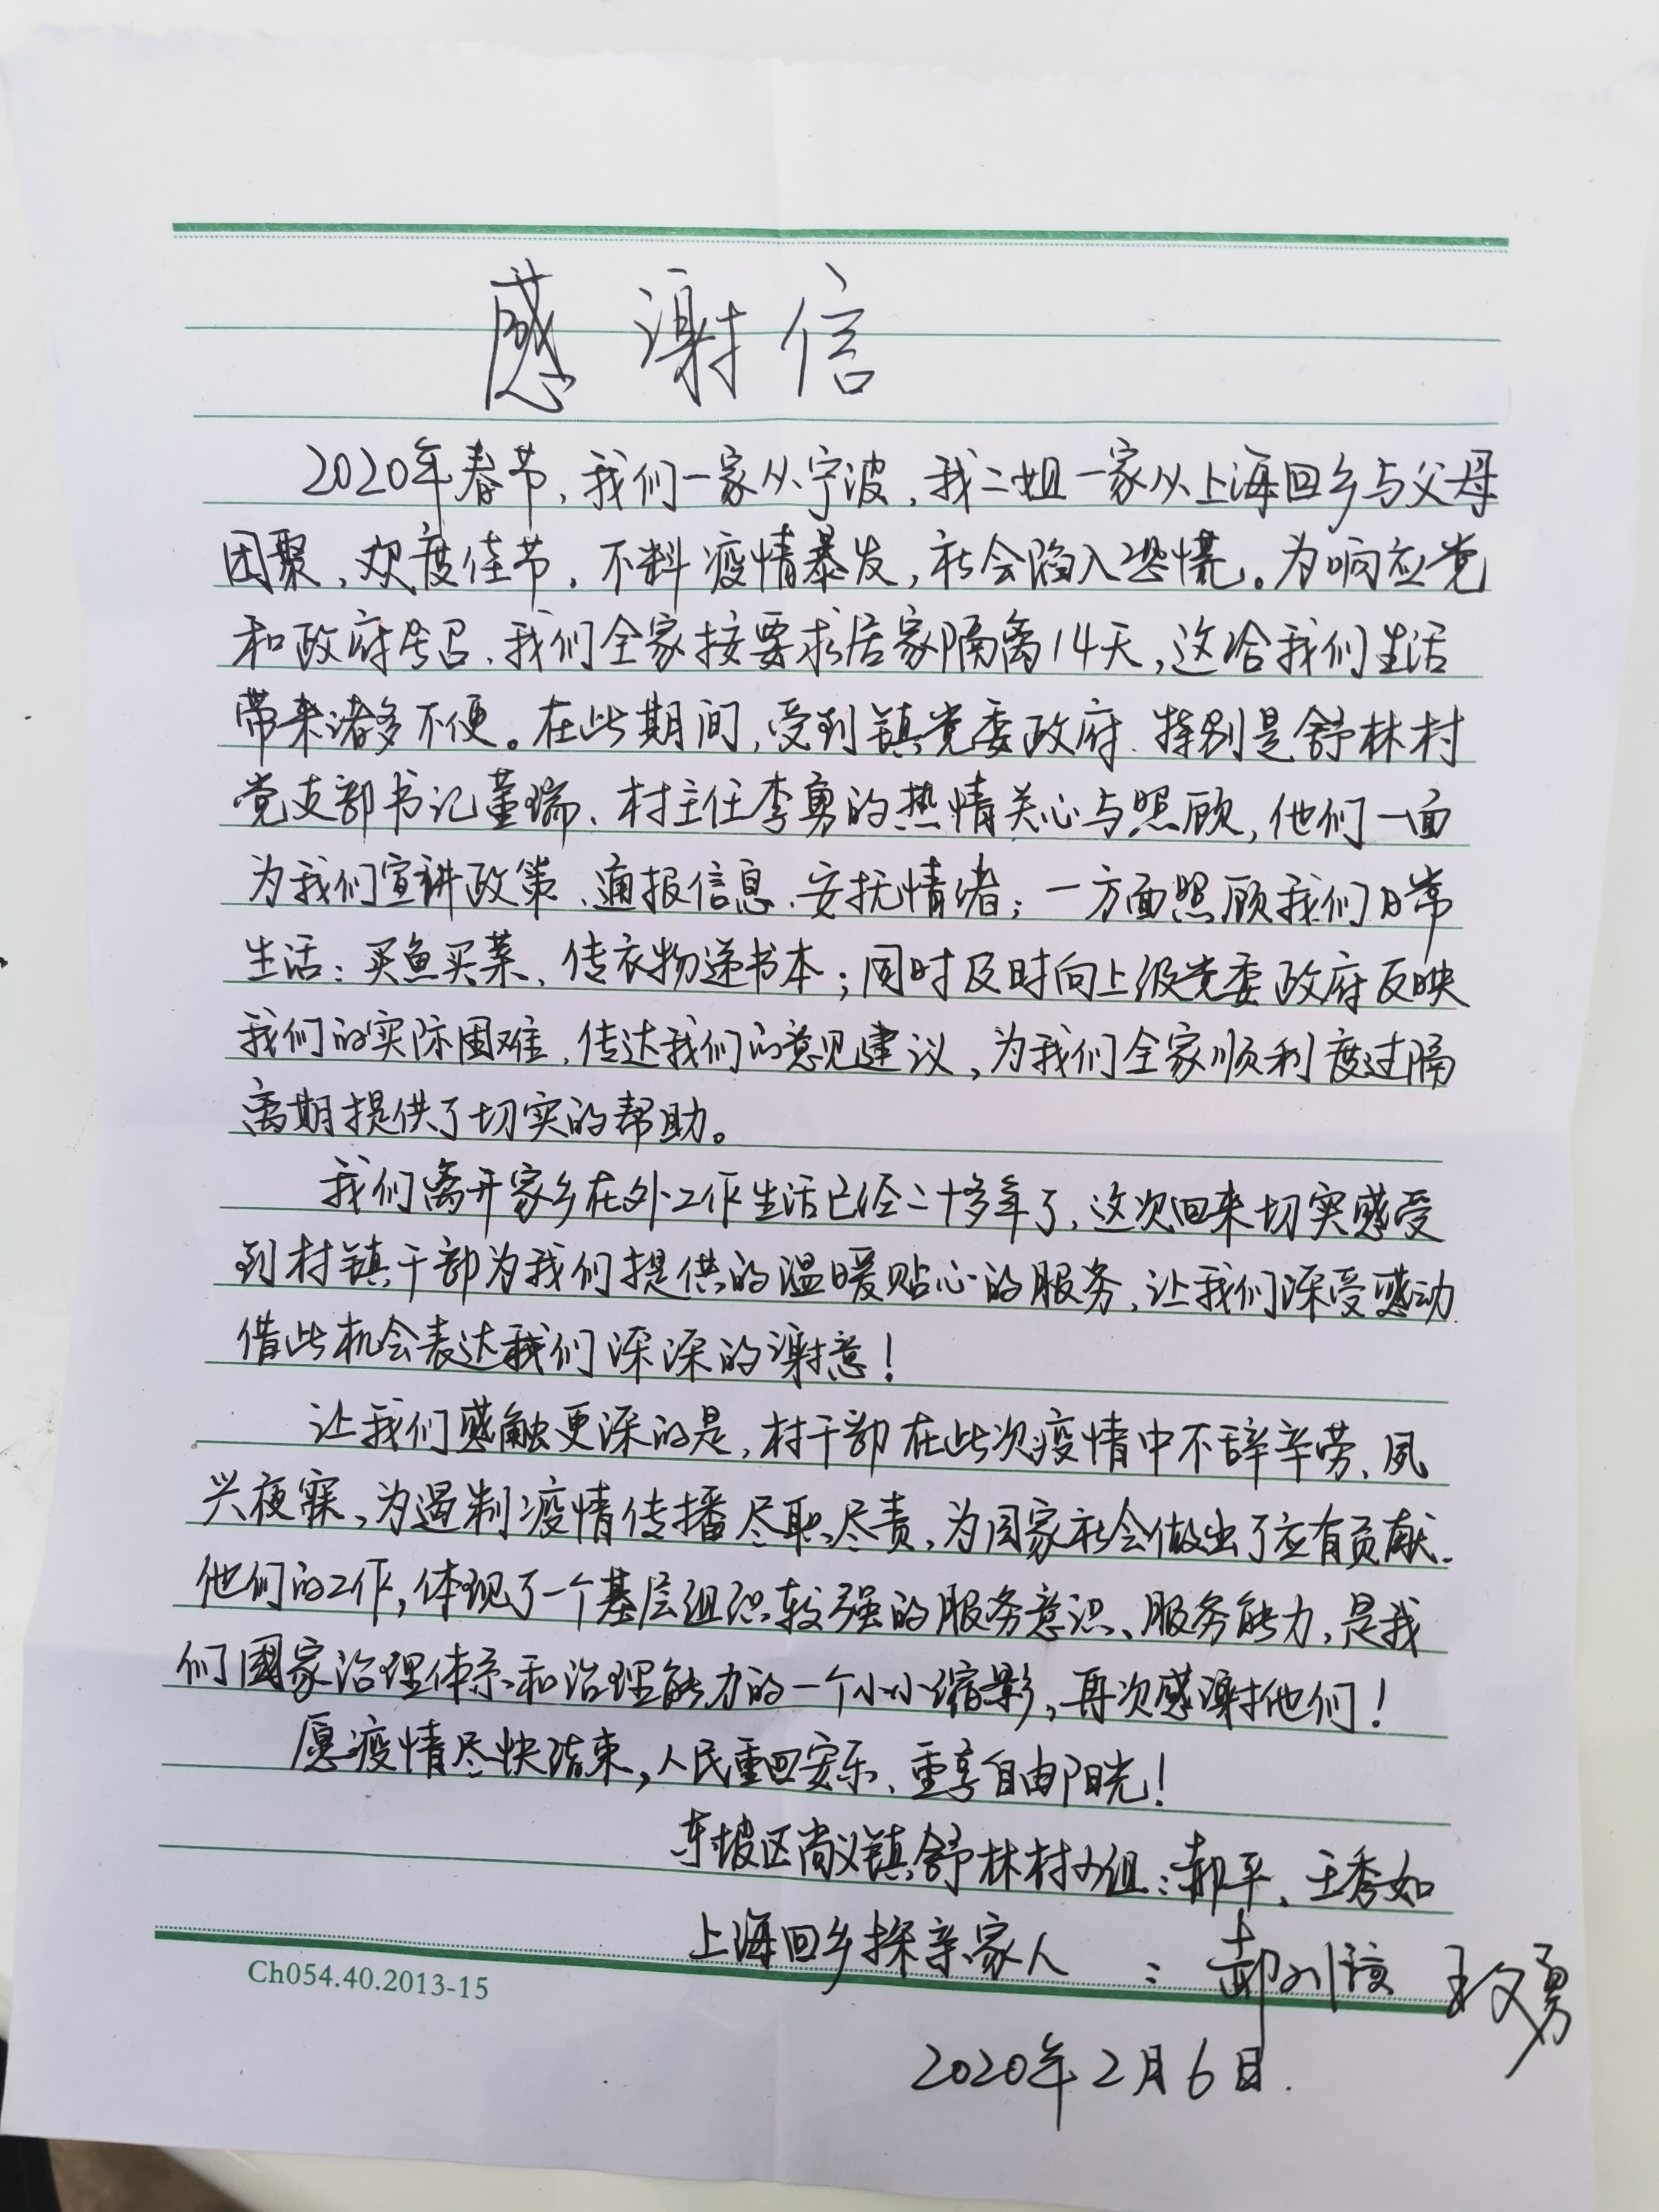 感谢信
2020年春节,我们一家从宁波,我二姐一家从上海回乡与父母
团聚、欢度佳节,不料疫情暴发,社会陷入恐慌。为响应党
和政府号召,我们全家按要求居家隔离14天,这给我们生活
带来诸多不便。在此期间,受到镇党委政府、特别是舒林村
党支部书记董瑞、村主任李勇的热情关心与照顾,他们一面
为我们宣讲政策、通报信息、安抚情绪;一方面照顾我们日常
生活:买鱼买菜、传衣物递书本;同时及时向上级党委政府反映
我们的实际困难,传达我们的意见建议,为我们全家顺利度过隔
离期提供了切实的帮助。
我们离开家乡在外工作生活已经二十多年了,这次回来切实感受
到村镇干部为我们提供的温暖贴心的服务,让我们深受感动.
借此机会表达我们深深的谢意!
让我们感触更深的是,村干部在此次疫情中不辞辛劳、夙
兴夜寐、为遏制疫情传播尽职尽责,为国家社会做出了应有贡献.
他们的工作,体现了一个基层组织较强的服务意识、服务能力,是我
们国家治理体系和治理能力的一个小小缩影,再次感谢他们!
愿疫情尽快结束,人民重回安乐、重享自由阳光!
东坡区尚义镇舒林村组:郝平、王秀如
上海回乡探亲家人:郝川 王文勇
Ch054.40.2013-15
2020年2月6日.